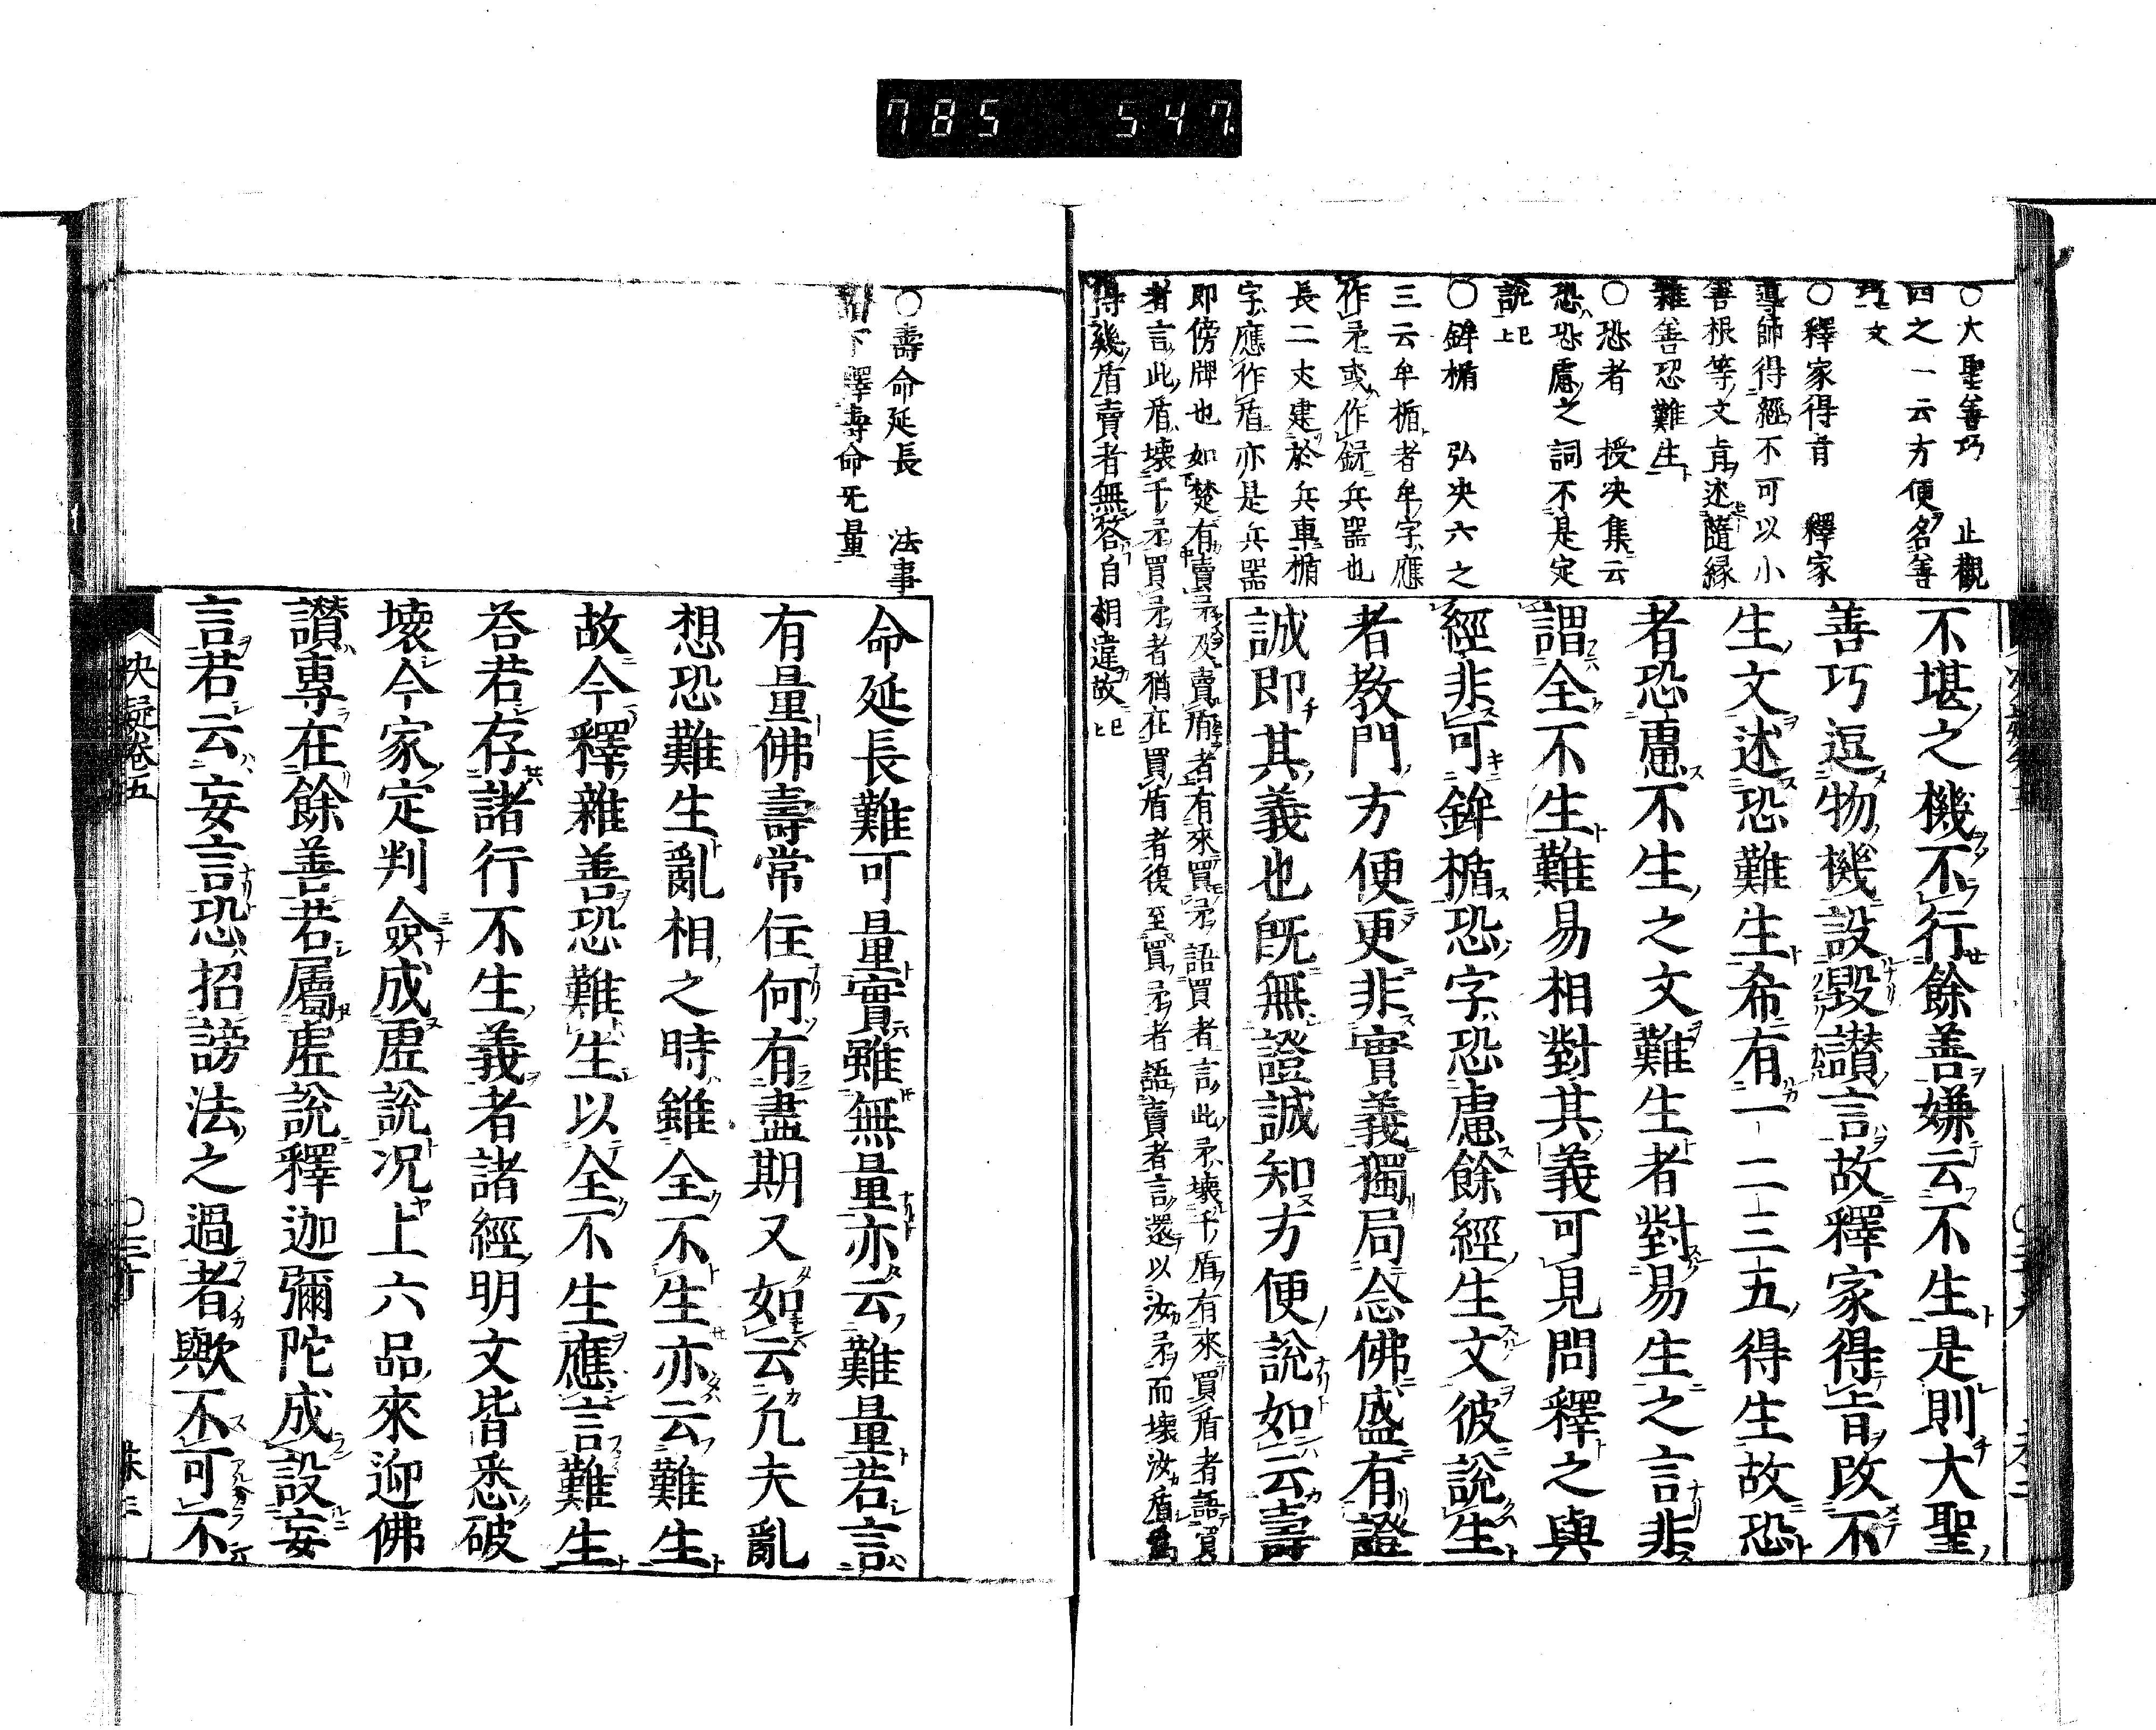 785 547
○大聖善巧 止觀
四之一云方便名善
巧文
○釋家得旨 釋家
導師得經不可以小
善根等文旨述隨縁
雜善恐難生
○恐者 授决集云
恐恐慮之詞不是定
說已上
○鉾楯 弘决六之
三云牟楯者牟字應
作矛或作鉾兵器也
長二丈建於兵車楯
字應作盾亦是兵器
即傍牌也如楚有賣矛及賣盾者有來買矛語買者言此矛壞千盾有來買盾者語買
者言此盾壞千矛買矛者猶在買盾者復至買矛者語賣者言還以汝矛而壞汝盾爲
得幾盾賣者無答自相違故已上
不堪之機不行餘善嫌云不生是則大聖
善巧逗物機設毀讃言故釋家得旨改不
生文述恐難生希有一二三五得生故恐
者恐慮不生之文難生者對易生之言非
謂全不生難易相對其義可見問釋之與
經非可鉾楯恐字恐慮餘經生文彼說生
者教門方便更非實義獨局念佛盛有證
誠即其義也旣無證誠知方便說如云壽
○壽命延長 法事
下釋壽命无量
命延長難可量實雖無量亦云難量若言
有量佛壽常住何有盡期又如云凢夫亂
想恐難生亂相之時雖全不生亦云難生
故今釋雜善恐難生以全不生應言難生
荅若存諸行不生義者諸經明文皆悉破
壞今家定判僉成虛說况上六品來迎佛
讃專在餘善若屬虛說釋迦彌陀成設妄
言若云妄言恐招謗法之過者歟不可不
决疑卷五